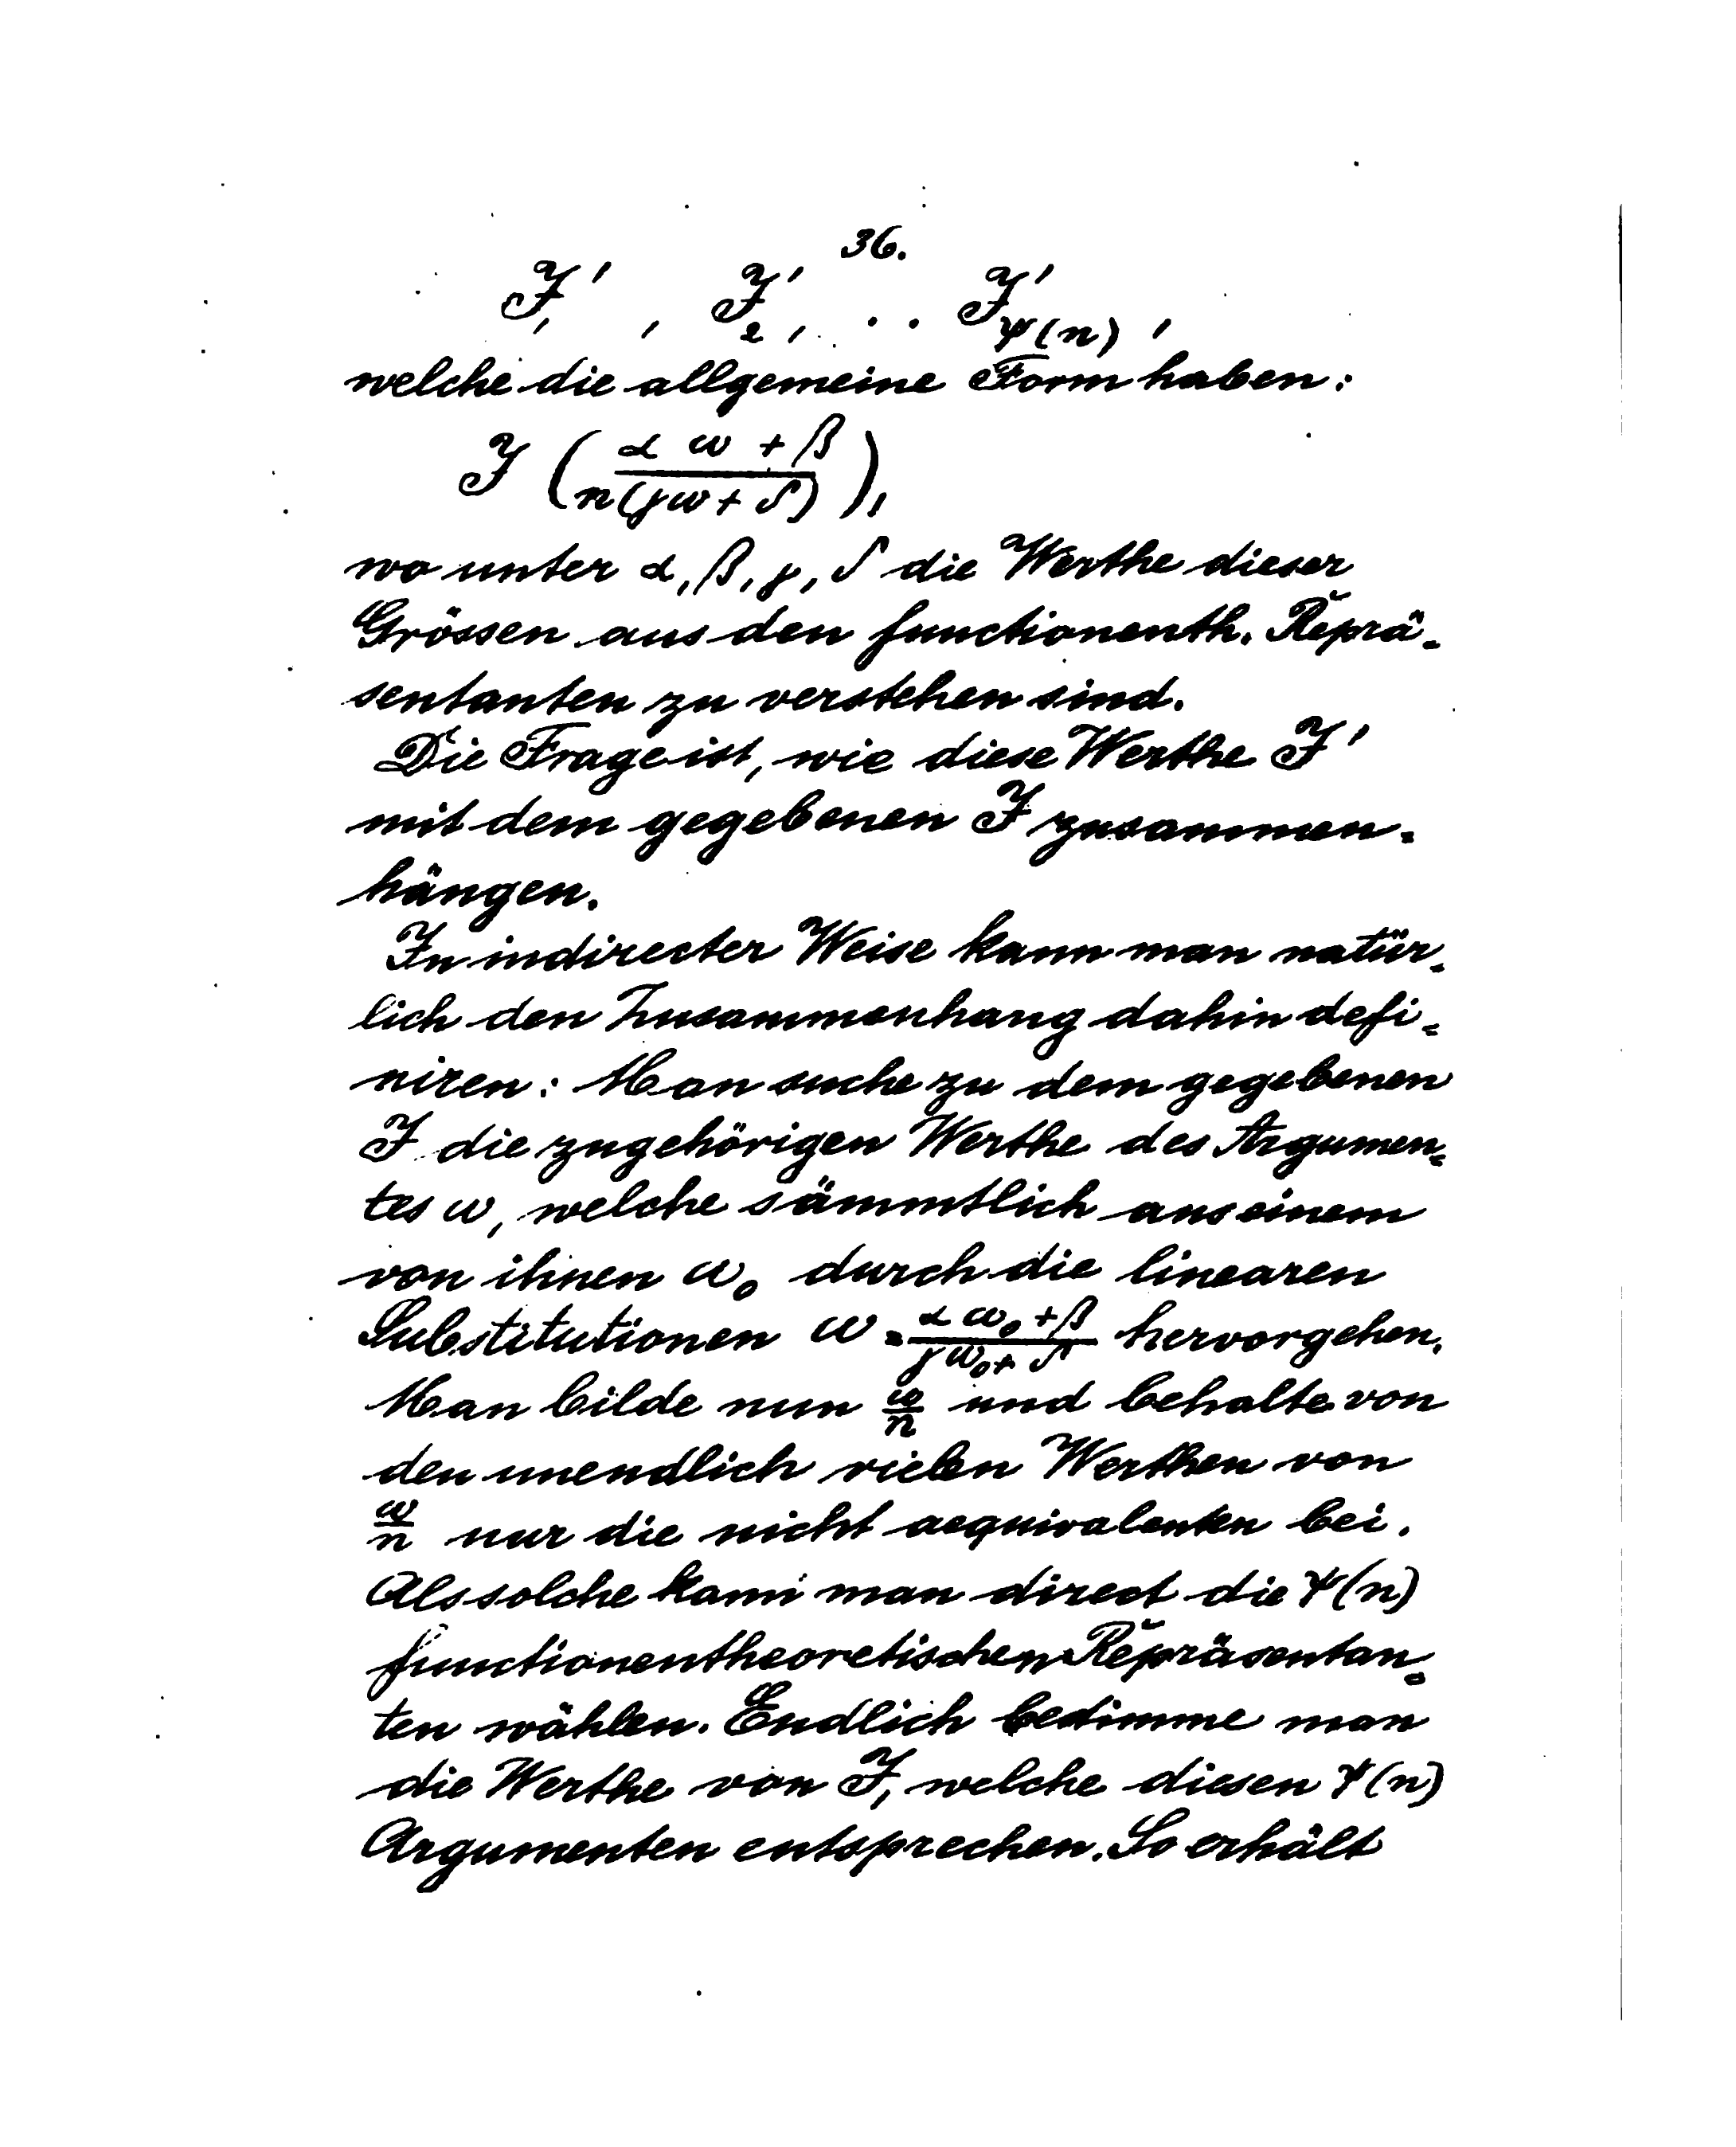 36.
J₁', J₂', . . J'_ψ(n),
welche die allgemeine Form haben:
J ( (α ω + β) / (n(γω + δ)) ),
wo unter α, β, γ, δ die Werthe dieser
Grössen aus den functionenth. Reprä-
sentanten zu verstehen sind.
Die Frage ist, wie diese Werthe J'
mit dem gegebenen J zusammen-
hängen.
In indirecter Weise kann man natür-
lich den Zusammenhang dahin defi-
niren: Man suche zu dem gegebenen
J die zugehörigen Werthe des Argumen-
tes ω, welche sämmtlich aus einem
von ihnen ω₀ durch die linearen
Substitutionen ω = (α ω₀ + β) / (γ ω₀ + δ) hervorgehen.
Man bilde nun ω/n und behalte von
den unendlich vielen Werthen von
ω/n nur die nicht aequivalenten bei.
Als solche kann man direct die ψ(n)
functionentheoretischen Repräsentan-
ten wählen. Endlich bestimme man
die Werthe von J, welche diesen ψ(n)
Argumenten entsprechen. So erhält